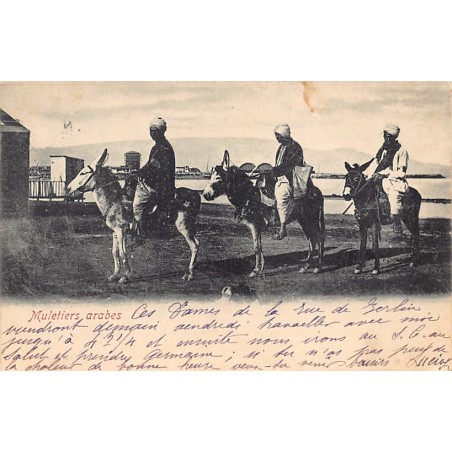 Muletiers arabes
Ces Dames de la rue de Gerlin
viendront demain vendredi travailler avec moi
jusqu'à 4 2 1/4 et ensuite nous irons au S. C. au
Salut et prendre Germaine ; si tu n'as pas peur de
la chaleur de bonne heure veux-tu venir Lucie